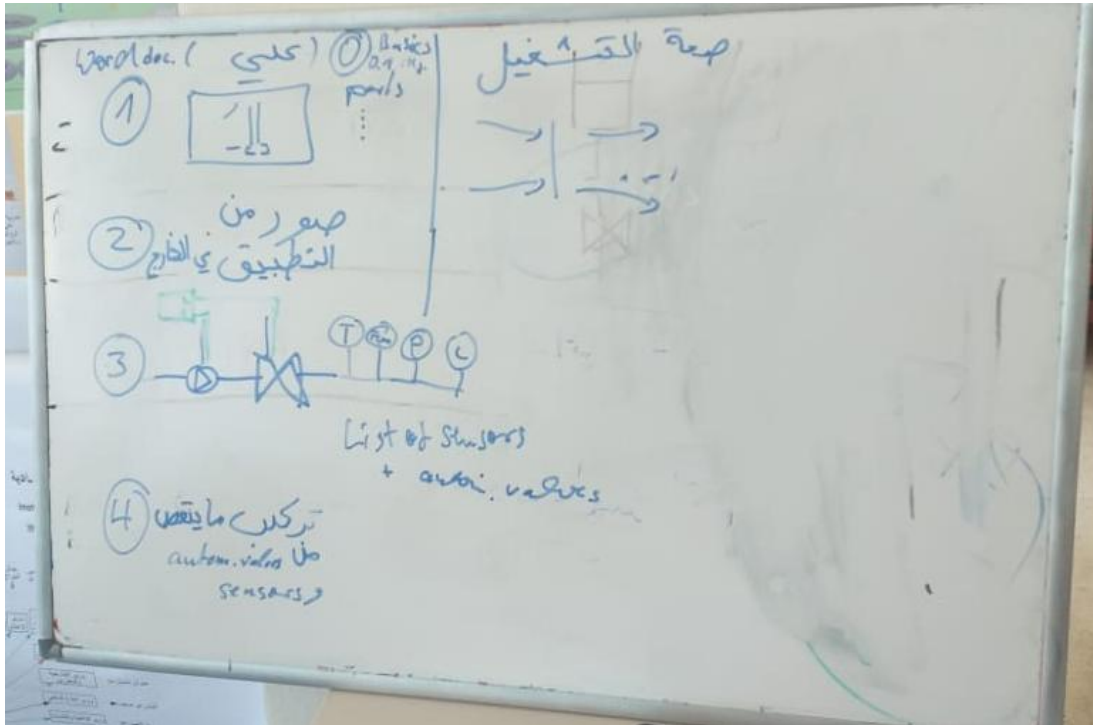 Word doc. (علي)
0 Basics
parts
1
2 صور من
التطبيق في الخارج
3
T
P
L
List of sensors
+ autom. valves
4 تركيب ما ينقص
من autom. valves
و sensors
صحة التشغيل